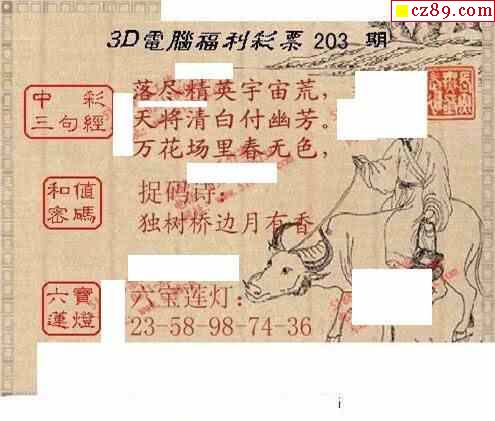 cz89.com
3D電腦福利彩票 203 期
中彩
三句經
落尽精英宇宙荒,
天将清白付幽芳。
万花场里春无色,
和值
密碼
捉码诗:
独树桥边月有香
六寶
蓮燈
六宝莲灯:
23-58-98-74-36